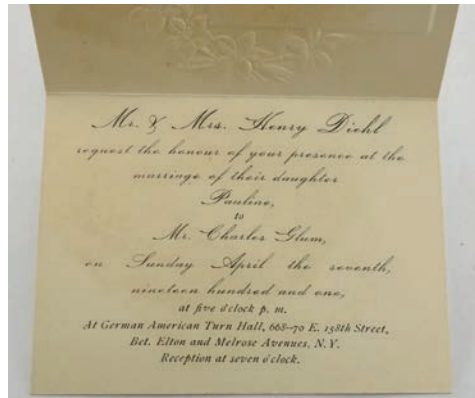 Mr. & Mrs. Henry Diehl
request the honour of your presence at the
marriage of their daughter
Pauline,
to
Mr. Charles Glum,
on Sunday April the seventh,
nineteen hundred and one,
at five o'clock p. m.
At German American Turn Hall, 668-70 E. 158th Street,
Bet. Elton and Melrose Avenues, N. Y.
Reception at seven o'clock.